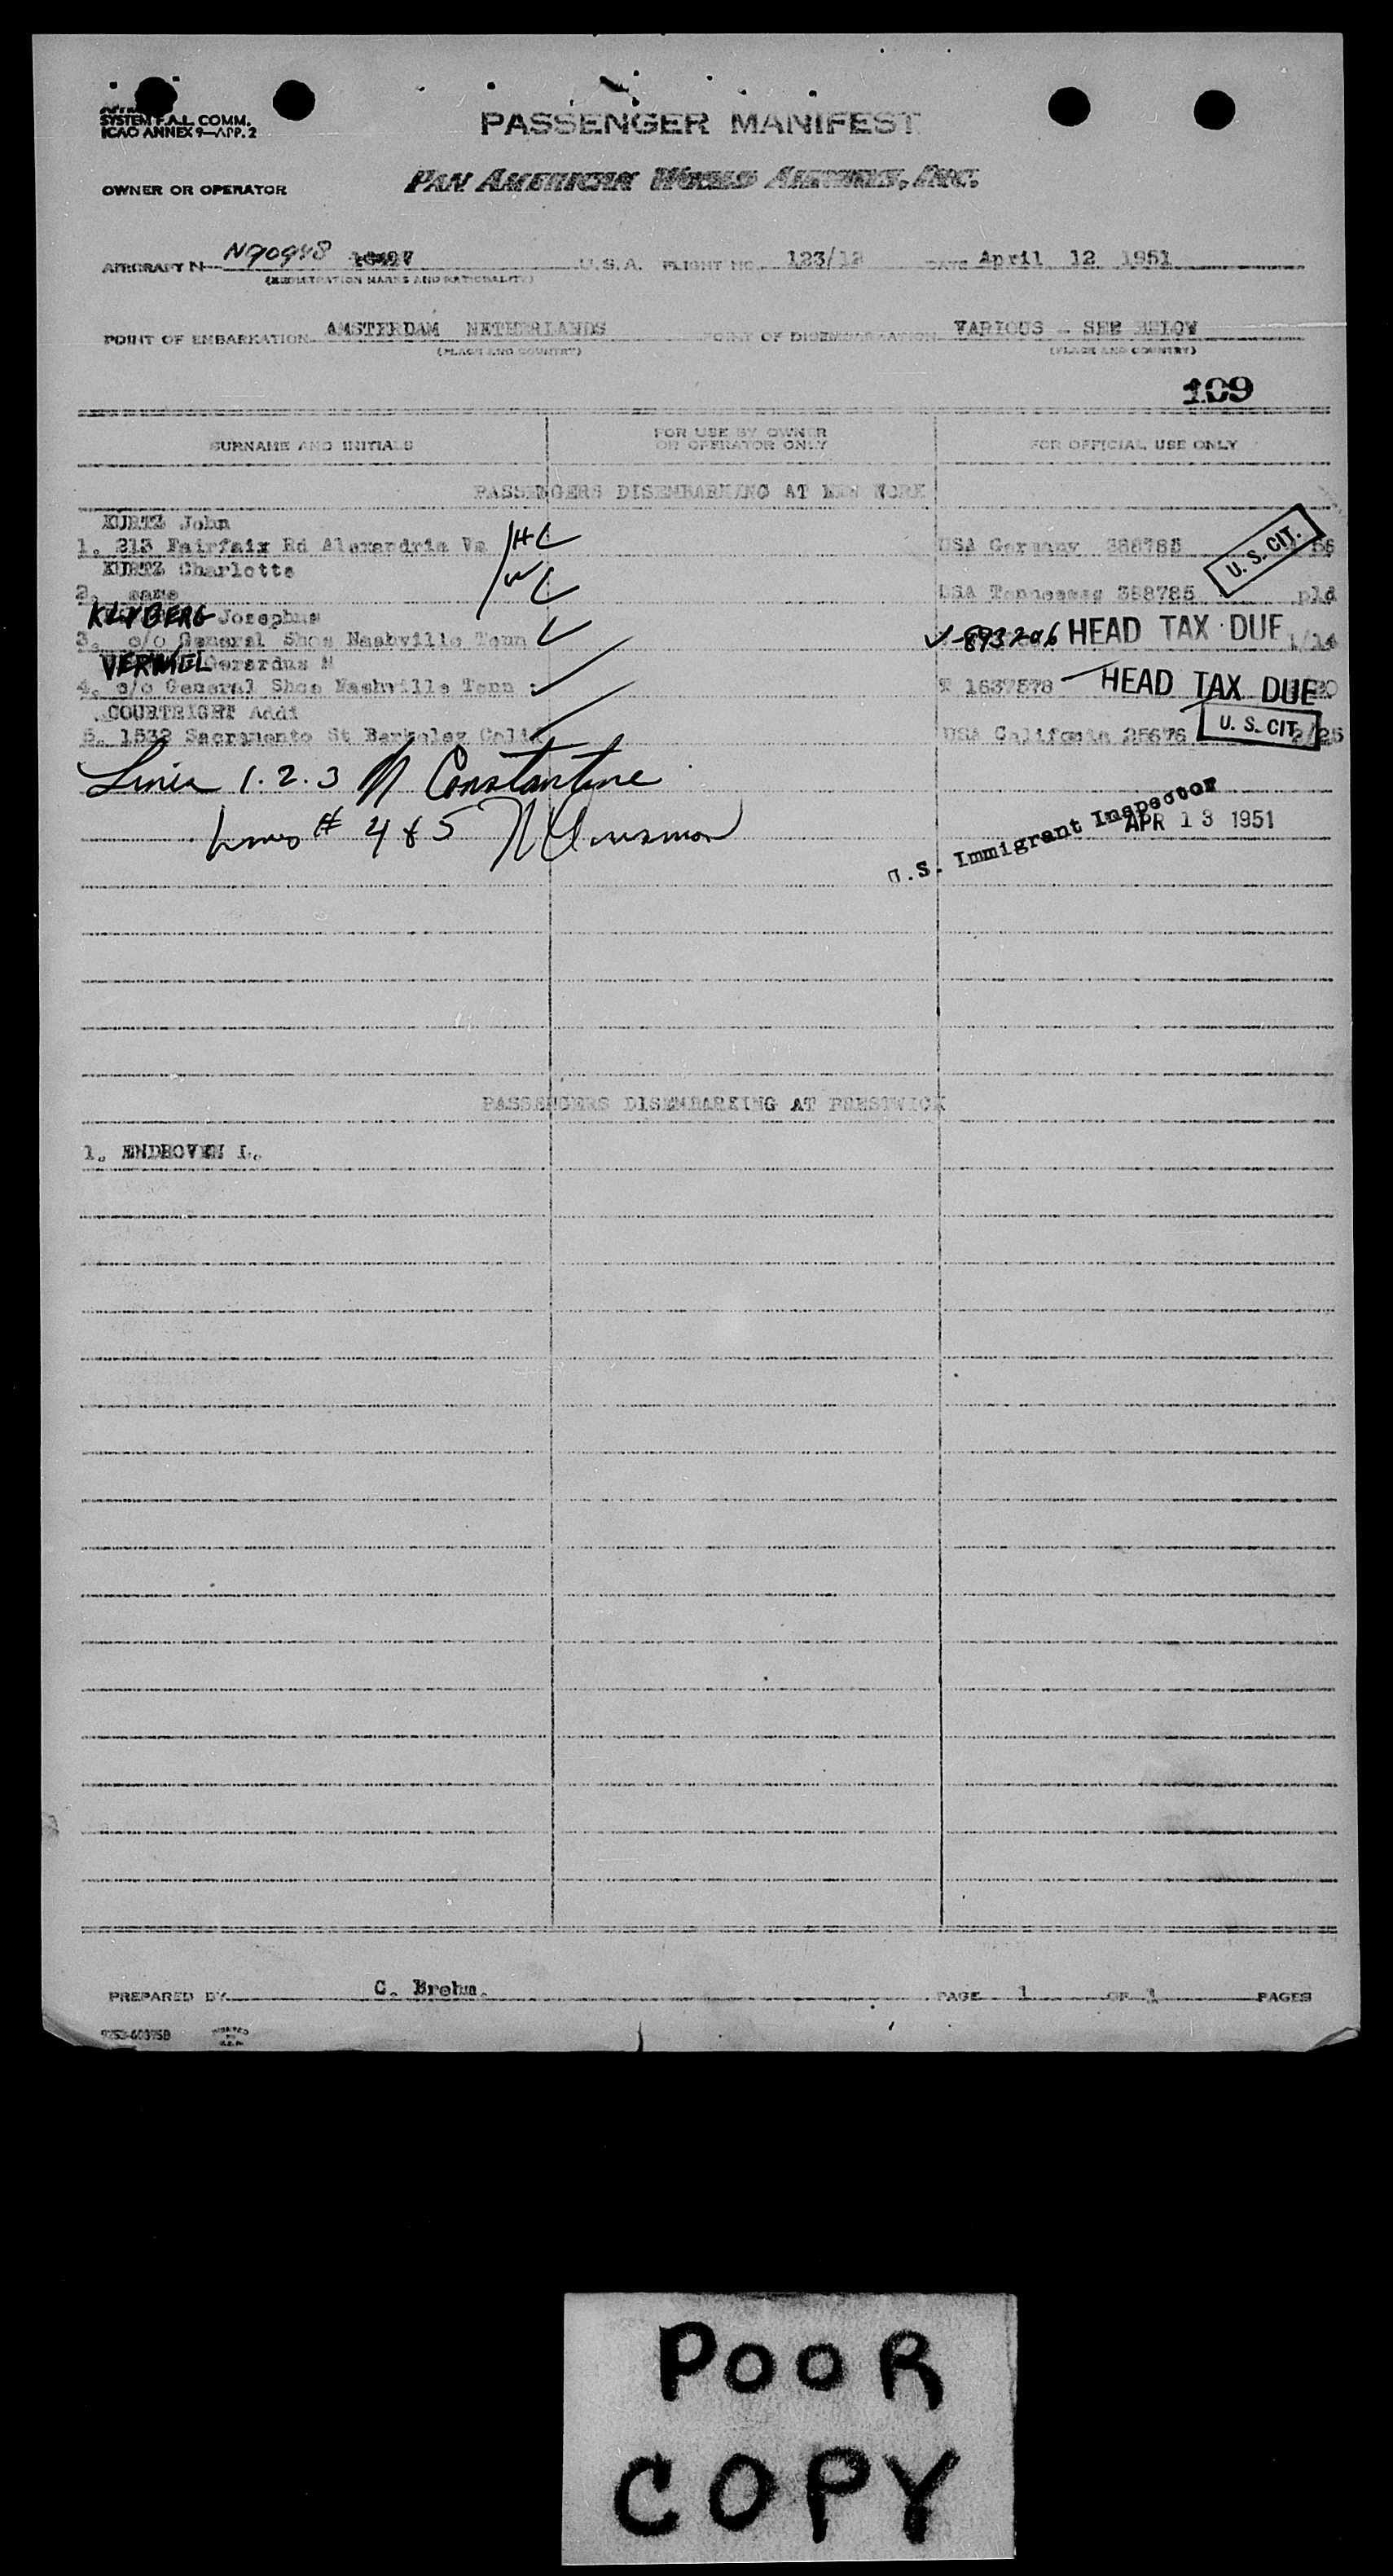 SYSTEM F.A.L. COMM.
ICAO ANNEX 9—APP. 2
PASSENGER MANIFEST
OWNER OR OPERATOR
PAN AMERICAN WORLD AIRWAYS, INC.
AIRCRAFT N— N90948 U.S.A. FLIGHT NO. 123/12 DATE April 12 1951
(REGISTRATION MARKS AND NATIONALITY)
POINT OF EMBARKATION AMSTERDAM NETHERLANDS POINT OF DISEMBARKATION VARIOUS - SEE BELOW
(PLACE AND COUNTRY) (PLACE AND COUNTRY)
109
SURNAME AND INITIALS FOR USE BY OWNER OR OPERATOR ONLY FOR OFFICIAL USE ONLY
PASSENGERS DISEMBARKING AT NEW YORK
KURTZ John
1. 213 Fairfax Rd Alexandria Va H USA Germany U. S. CIT.
KURTZ Charlotte
2. same W USA Tennessee 388785 pld
KLYBERG Josephus
3. c/o General Shoe Nashville Tenn V-893206 HEAD TAX DUE 1/14
Gerardus M
4. c/o General Shoe Nashville Tenn HEAD TAX DUE
COURTRIGHT Addi
5. 1532 Sacramento St Berkeley Calif USA California 25676 U. S. CIT. /25
Lines 1. 2. 3 N Constantine
Lines # 4 & 5
U.S. Immigrant Inspector
APR 13 1951
PASSENGERS DISEMBARKING AT PRESTWICK
1. ENDHOVEN L.
PREPARED BY C. Brehm. PAGE 1 OF 1 PAGES
PRINTED IN U.S.A.
POOR
COPY